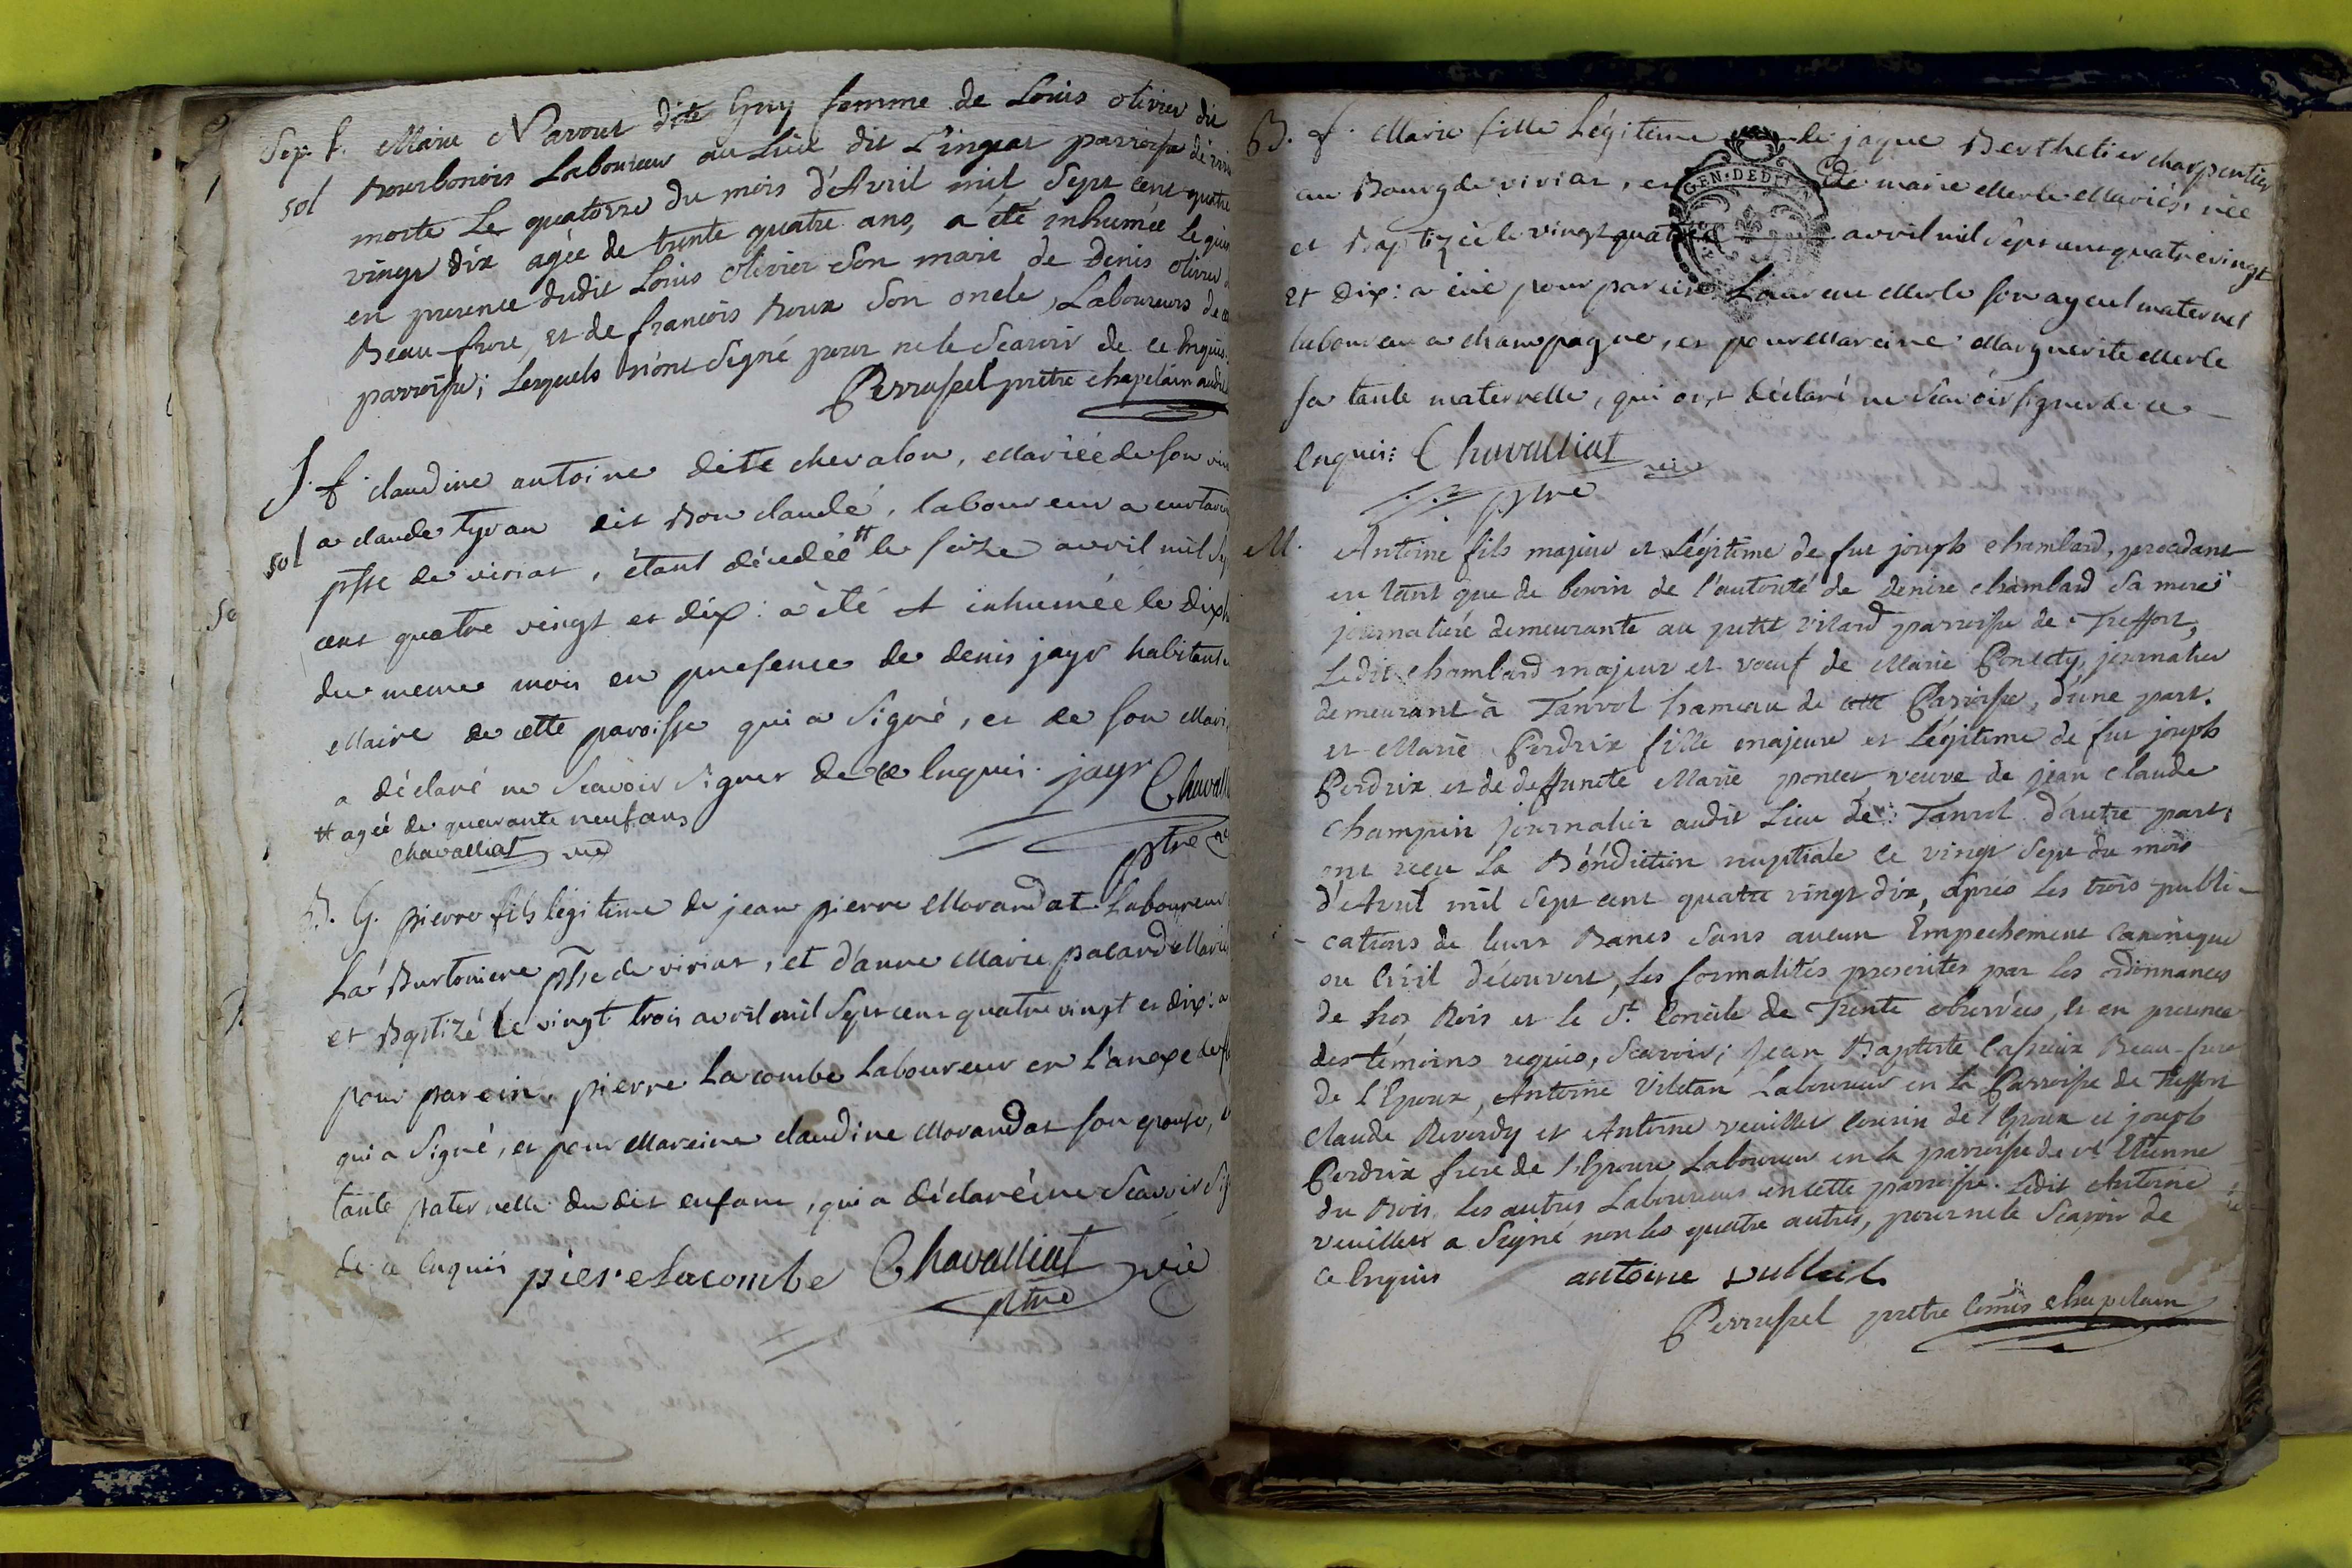 Sep. f. Marie Navout dite Guy femme de Louis olivier dit
sol Bourbonois Laboureur au Lieu dit Lingeat parroisse de viria
morte Le quatorze du mois d'Avril mil Sept cent quatre
vingt dix agée de trente quatre ans, a été inhumée le quin
en presence dudit Louis olivier Son mari de Denis olivier
Beau-frere, et de francois Roux Son oncle, Laboureurs de ce
parroisse; Lesquels n'ont Signé pour ne le Scavoir de ce Enquis.
Perrussel prêtre chapelain
S. f. claudine antoine dite chevalon, Mariée de son viv
sol a claude tyvan dit Bon claude, laboureur a curtar
psse de viriat, étant décédée # le seize avril mil Se
cent quatre vingt et dix: a été et inhumée le dix
du meme mois en presence de denis jayr habitant
Maire de cette paroisse qui a Signé, et de son Mari
a déclaré ne Scavoir Signer de ce Enquis. jayr Chavall
# agée de quarante neuf ans
Chavalliat vic
ptre
B. G. pierre fils légitime de jean pierre Morandat Laboureur
La Burtoniere psse de viriat, et d'anne Marie palard Mariés
et Baptizé le vingt trois avril mil Sept cent quatre vingt et dix: a
pour parein, pierre Lacombe Laboureur en l'anexe de
qui a Signé, et pour Mareine claudine Morandat son epouse,
tante paternelle du dit enfant, qui a déclaré ne Scavoir Sig
de ce Enquis pierre lacombe Chavalliat vic
ptre
B. f. Marie fille Légitime de jaque Berthelier charpentier
GEN. DE DIJON
au Bourg de viriat, et de marie Merle Mariés, née
et Baptizée le vingt quatre avril mil Sept cent quatre vingt
et dix: a eue pour parein Laurent Merle son ayeul maternel
laboureur a champagne, et pour Mareine Marguerite Merle
sa tante maternelle, qui ont déclaré ne Scavoir signer de ce
Enquis: Chavalliat vic
ptre
M. Antoine fils majeur et Légitime de fut joseph chambard, procedant
en tant que de besoin de l'autorité de Denise chambard Sa mere
journaliere demeurante au petit vilard parroisse de Treffort,
Ledit chambard majeur et vœuf de Marie Poncety, journalier
demeurant à Tanvol hameau de cette Parroisse, d'une part.
et Marie Perdrix fille majeure et Légitime de fut joseph
Perdrix et de deffuncte Marie poncet veuve de jean claude
Champin journalier audit Lieu de Tanvol d'autre part,
ont reçu La Bénédiction nuptiale ce vingt Sept du mois
d'Avril mil Sept cent quatre vingt dix, après Les trois publi-
cations de leurs Bancs Sans aucun Empechement Canonique
ou Civil découvert, Les formalités prescrites par les ordonnances
de nos Rois et le St. Concile de Trente observées, et en presence
des témoins requis, Scavoir; Jean Baptiste Beau-frere
de l'Epoux, Antoine Viletan Laboureur en la Parroisse de Treffort
Claude Reverdy et Antoine veuillet cousin de l'Epoux et joseph
Perdrix frere de l'Epouse Laboureur en la parroisse de st Etienne
du Bois, les autres Laboureurs en cette parroisse. Ledit Antoine
veuillet a Signé non les quatre autres, pour ne le Scavoir de
ce Enquis antoine vulleit
Perrussel prêtre Comis chapelain